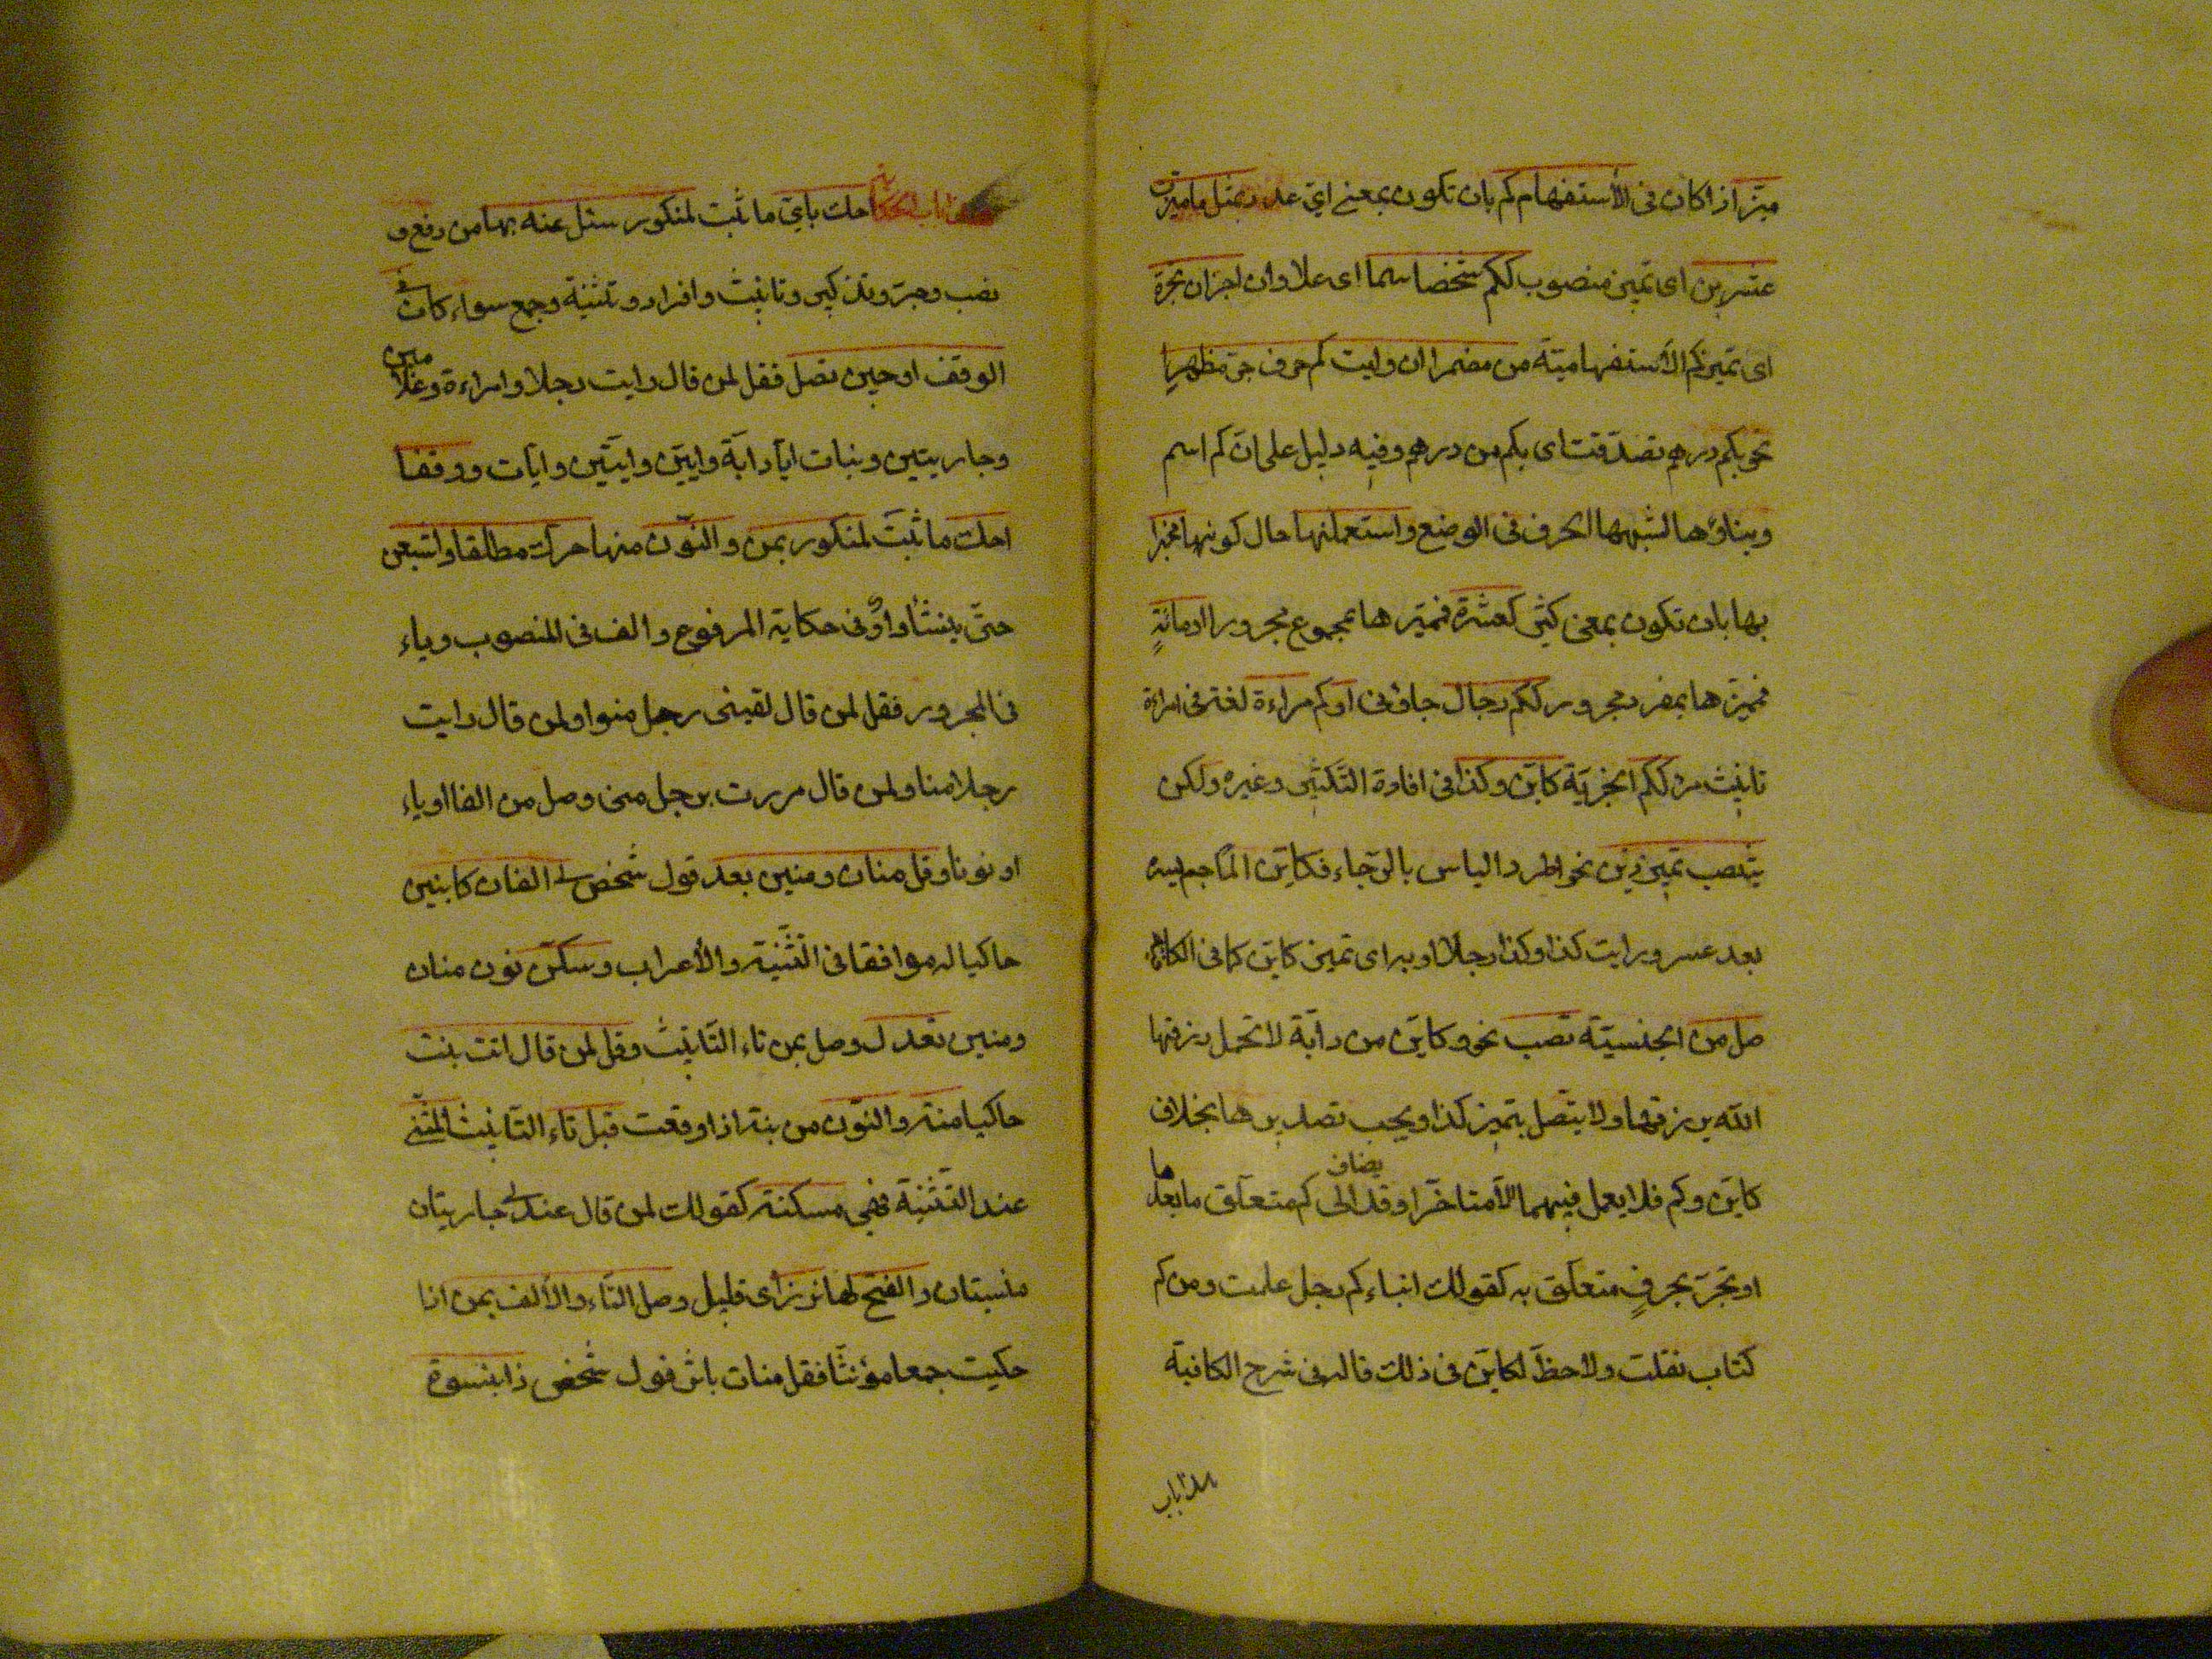 ميّز اذا كان فى الأستفهام كم بان تكون بمعنى ايّ عدد بمثل ما ميّزت
عشرين اى تميز منصوب لكم شخصا سما اى علا وان اجزان تجرّه
اى تميز كم الأستفهاميّة من مضمرا ان وليت كم حرف جرّ مظهرا
نحو بكم درهم تصدّقت اى بكم من درهم وفيه دليل على انّ كم اسم
وبناؤها لشبهها الحرف فى الوضع واستعملنها حال كونها مخبرا
بها بان تكون بمعنى كثير كعشرة فميّزها بمجموع مجرورا اومائةٍ
فميّزها بمفرد مجرور لكم رجال جاؤنى اوكم مراءة لغة فى امراءة
تانيث مرء ككم الخبريّة كايّن وكذا فى افادة التّكثير وغيره ولكن
ينتصب تميز ذين نحو اطرد الياس بالرّجاء فكايّن الما حم يسره
بعد عسر ورايت كذا وكذا رجلا او به اى تميز كايّن كما فى الكافية
صل من الجنسيّة تصب نحو وكايّن من دابّة لا تحمل رزقها
الله يرزقها ولا يتّصل بتميز كذا ويجب تصديرها بخلاف
كايّن وكم فلا يعمل فيهما الّا متاخّرا وقد يضاف الى كم متعلّق ما بعدها
او تجرّ بحرفٍ متعلّق به كقولك انباء كم رجل علمت ومن كم
كتاب نقلت ولاحظّ لكايّن فى ذلك قاله فى شرح الكافية
هذا باب
هذا باب الحكاية احك بايّ ما ثبت لمنكور سئل عنه بها من رفع و
نصب وجرّ وتذكير وتانيث وافراد وتثنية وجمع سواء كان فى
الوقف او حين تصل فقل لمن قال رايت رجلا وامراءة وغلامين
وجاريتين وبنات ايّا وايّة وايّين وايّتين وايّات ووقفا
احك ما ثبت لمنكور بمن والنّون منها حرّك مطلقا واشبعن
حتّى ينشأ واوٌ فى حكاية المرفوع والف فى المنصوب وياء
فى المجرور فقل لمن قال لقينى رجل منو او لمن قال رايت
رجلا منا ولمن قال مررت برجل منى وصل من الفا او ياء
او نونا وقل منان ومنين بعد قول شخص لى الفان كابنين
حاكيا له موافقا فى التّثنية والأعراب وسكّن نون منان
ومنين تعدل وصل بمن تاء التّانيث وقل لمن قال اتت بنت
حاكيا منة والنّون من بنة اذا وقعت قبل تاء التّانيث المثنّى
عند التّثنية فهى مسكنة كقولك لمن قال عندى جاريتان
منتان والفتح لها نزراى قليل وصل التّاء والألف بمن اذا
حكيت جمعا مؤنّثا فقل منات باثر قول شخص ذا بنسوة